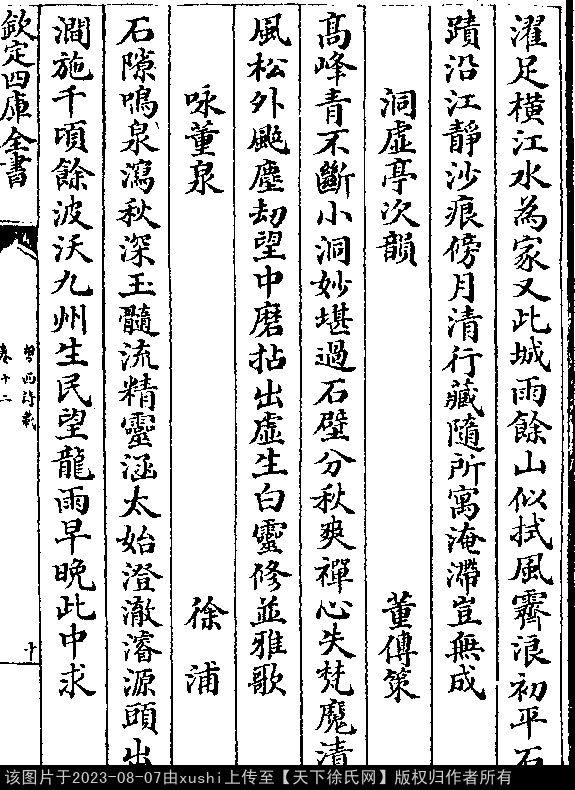 濯足横江水為家又此城雨餘山似拭風霽浪初平石
蹟沿江靜沙痕傍月清行藏隨所寓淹滯豈無成
洞虛亭次韻 董傳策
髙峰青不斷小洞妙堪過石壁分秋爽禪心失梵魔清
風松外颭塵劫望中磨拈出虛生白靈修並雅歌
咏董泉 徐浦
石隙鳴泉瀉秋深玉髓流精靈涵太始澄澈濬源頭出
澗施千頃餘波沃九州生民望龍雨早晚此中求
欽定四庫全書
粤西詩載
卷十二
十
该图片于2023-08-07由xushi上传至【天下徐氏网】版权归作者所有